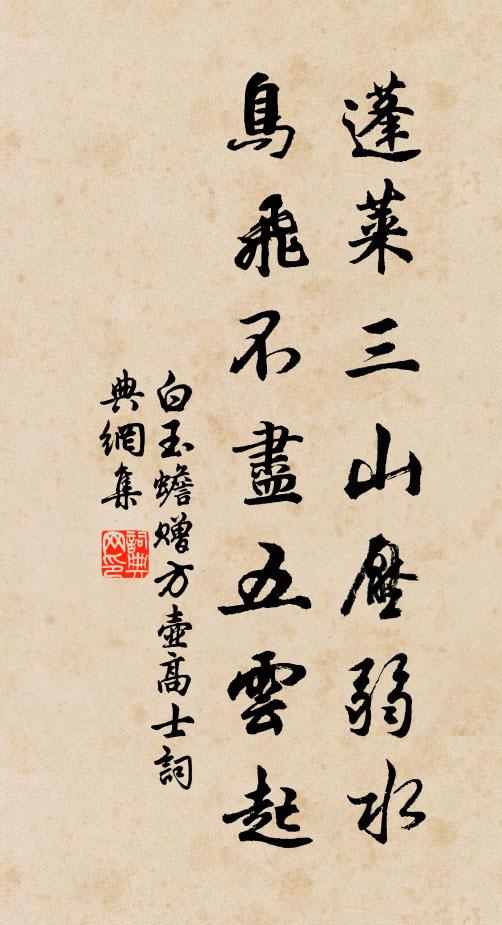 蓬萊三山壓弱水
鳥飛不盡五雲起
白玉蟾贈方壺高士詞
典網集
詞典網印